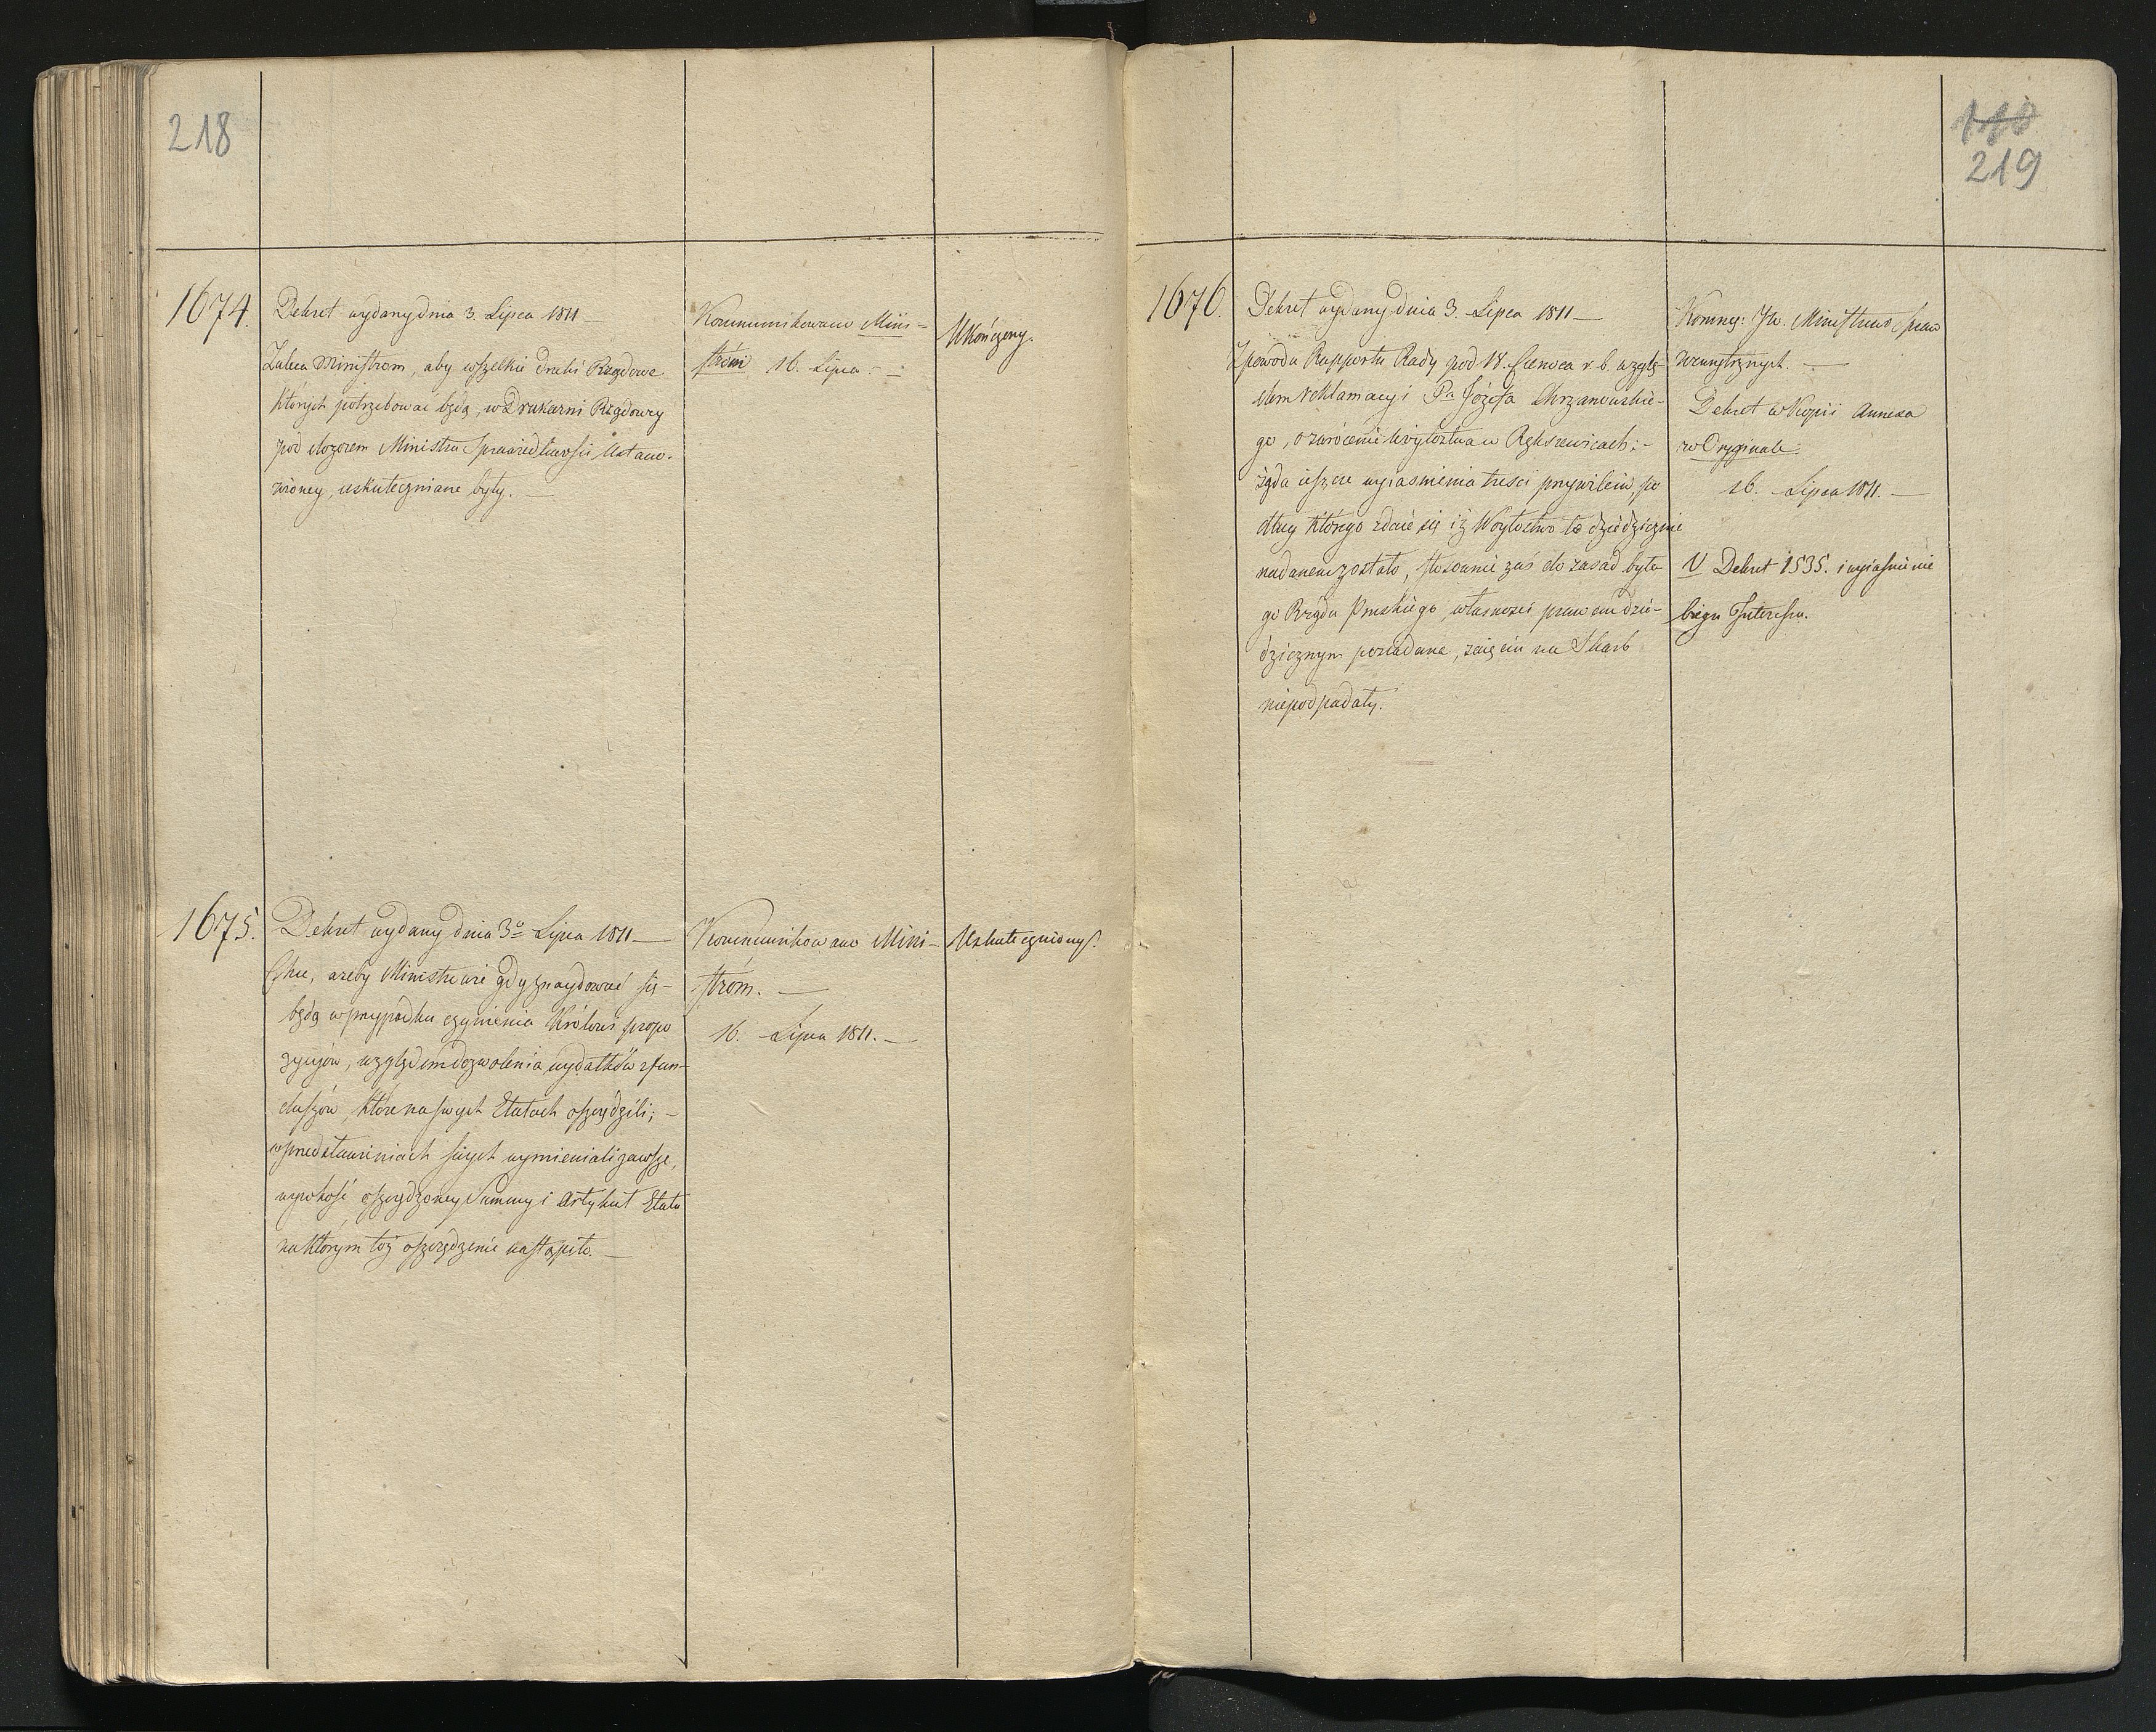 218
1674.
Dekret wydany dnia 3. Lipca 1811 —
Zaleca Ministrom, aby wszelkie druki Rządowe
których potrzebować będą, w Drukarni Rządowey
pod dozorem Ministra Sprawiedliwości Ustano-
wioney, uskuteczniane były. —
Kommunikowano Mini-
stróm 16. Lipca. —
Ukończony.
1675.
Dekret wydany dnia 3º Lipca 1811 —
Chce, ażeby Ministrowie gdy znaydować się
będą w przypadku czynienia Królowi propo
zycyów, względem dozwolenia wydatków z fun-
duszów, które na swych Etatach oszczędzili; —
w przedstawieniach swych wymieniali zawsze,
wysokość oszczędzoney Summy i Artykuł Etatu
na którym toż oszczędzenie nastąpiło. —
Kommunikowano Mini-
stróm. —
16. Lipca 1811. —
Uskuteczniony.
219
1676.
Dekret wydany dnia 3. Lipca 1811 —
Z powodu Rapportu Rady pod 18. Czerwca r. b. wzglę-
dem reklamacyi Pa Józefa Chrzanowskie-
go, o zwrócenie Woytostwa w Rększewicach; —
żąda ieszcze wyiasnienia treści przywileiu, po
dług którego zdaie się iż Woytostwo to dziedzicznie
nadanem zostało, stosownie zaś do zasad byłe-
go Rządu Pruskiego, własności prawem dzie-
dzicznym posiadane, zaięciu na Skarb
niepodpadały.
Kommu: Jw. Ministrowi Spraw
Wewnętrznych. —
Dekret w Kopii Annexa
w Oryginale.
16. Lipca 1811. —
V Dekret 1535. i wyiaśnienie
biegu Interessu.